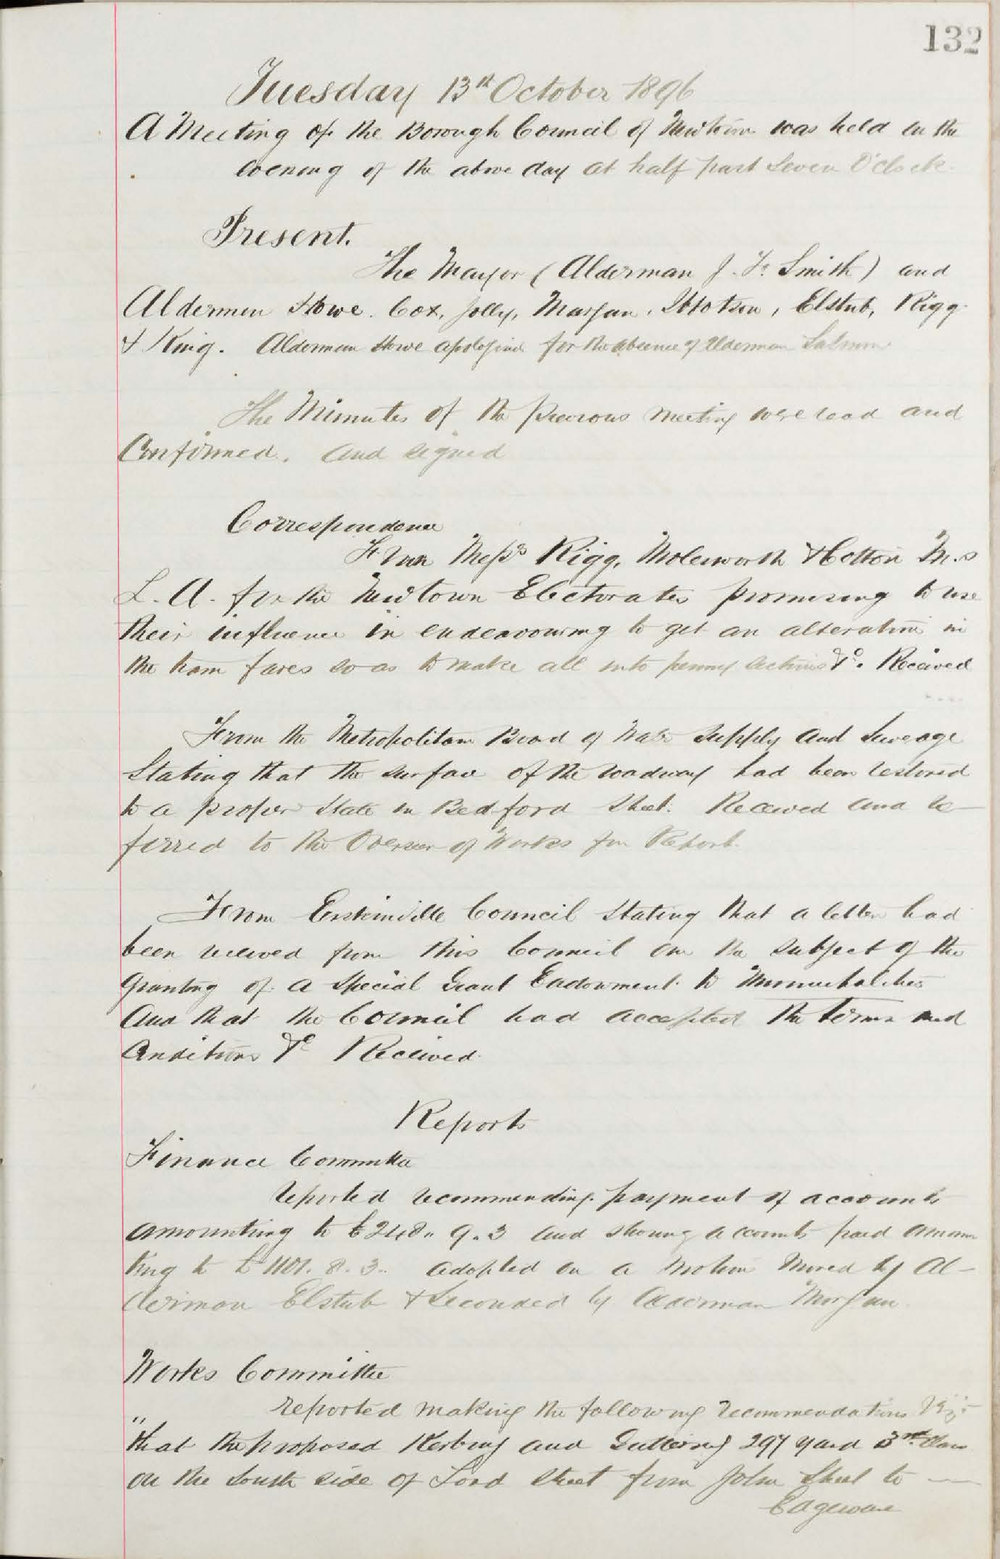 132
Tuesday 13th October 1896
A Meeting of the Borough Council of Newtown was held on the
evening of the above day at half past Seven O'Clock.
Present.
The Mayor (Alderman J. F. Smith) and
Aldermen Howe. Cox, Jolly, Morgan, Ibbotson, Elstub, Rigg
& King. Alderman Howe apologised for the absence of Alderman Salmon
The Minutes of the previous meeting were read and
Confirmed. and signed
Correspondence
From Messrs Rigg, Molesworth & Cotton M.s
L. A. for the Newtown Electorates promising to use
their influence in endeavouring to get an alteration in
the tram fares so as to make all into penny sections &c. Received
From the Metropolitan Board of Water Supply and Sewerage
Stating that the surface of the roadway had been restored
to a proper state in Bedford Street. Received and re-
ferred to the Overseer of Works for Report.
From Erskineville Council stating that a letter had
been received from this Council on the subject of the
granting of a Special Grant Endowment to Municipalities
And that the Council had accepted the terms and
Conditions &c Received.
Reports
Finance Committee
reported recommending payment of accounts
amounting to £248. 9. 3 and showing accounts paid amoun
ting to £1101. 8. 3. adopted on a motion moved by Al-
derman Elstub & Seconded by Alderman Morgan
Works Committee
reported making the following recommendations Viz:-
"that the proposed Kerbing and Guttering 297 yard 3rd Class
on the South side of Lord Street from John Street to —
Edgeware